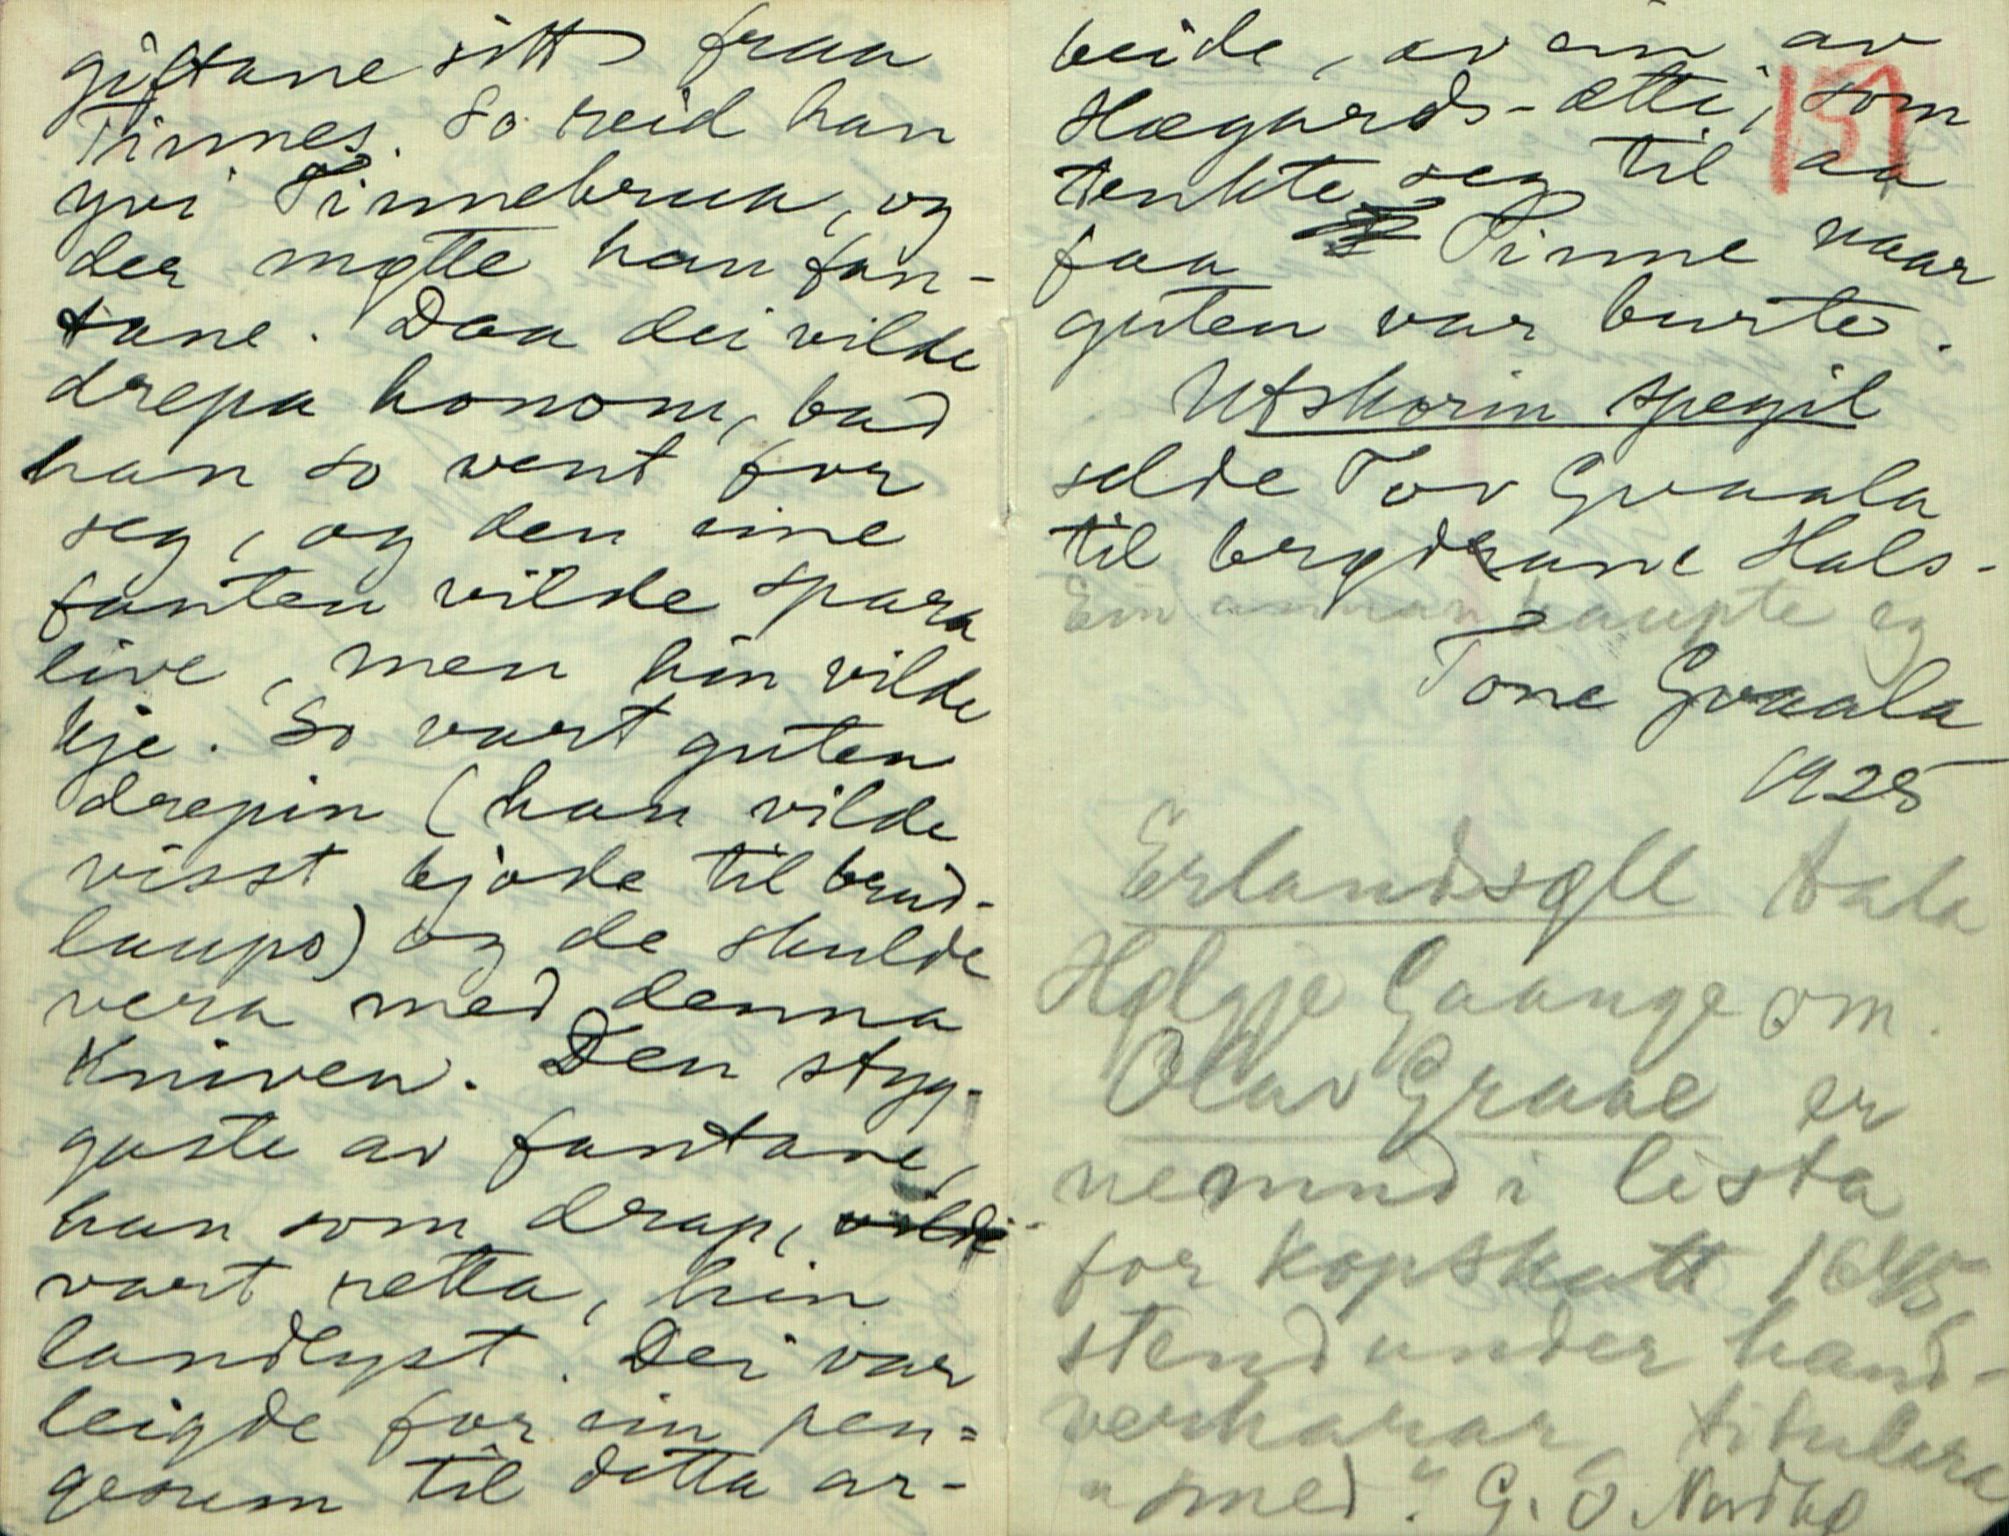 giftane sitt fraa
Tinnes. So reid han
yvi Tinnebrua, og
der møtte han fan-
tane. Daa dei vilde
drepa honom, bad
han so vent for
seg, og den eine
fanten vilde spara
live, men hin vilde
kje. So vart guten
drepin (han vilde
visst bjode til brud-
laups) og de skulde
vera med denna
kniven. Den styg-
gaste av fantane,
han som drap, vilde
vart retta, hin
landlyst. Dei var
leigde for ein pen-
gesum til ditta ar-
beide, av ein av
Hægards-ætti, som
tenkte seg til aa
faa Tinne naar
guten var burte.
15
Utskorin spegil
selde Tov Gvaala
til brydrane Hals-
Ein annan kaupte eg
Tone Gvaala
1925
Erlandsøll tala
Hølgje Gaange om.
Olav Graae er
nemnd i lista
for kopskatt 1645,
stend under hand-
verkarar, titulera
"smed". G. O. Nordbø